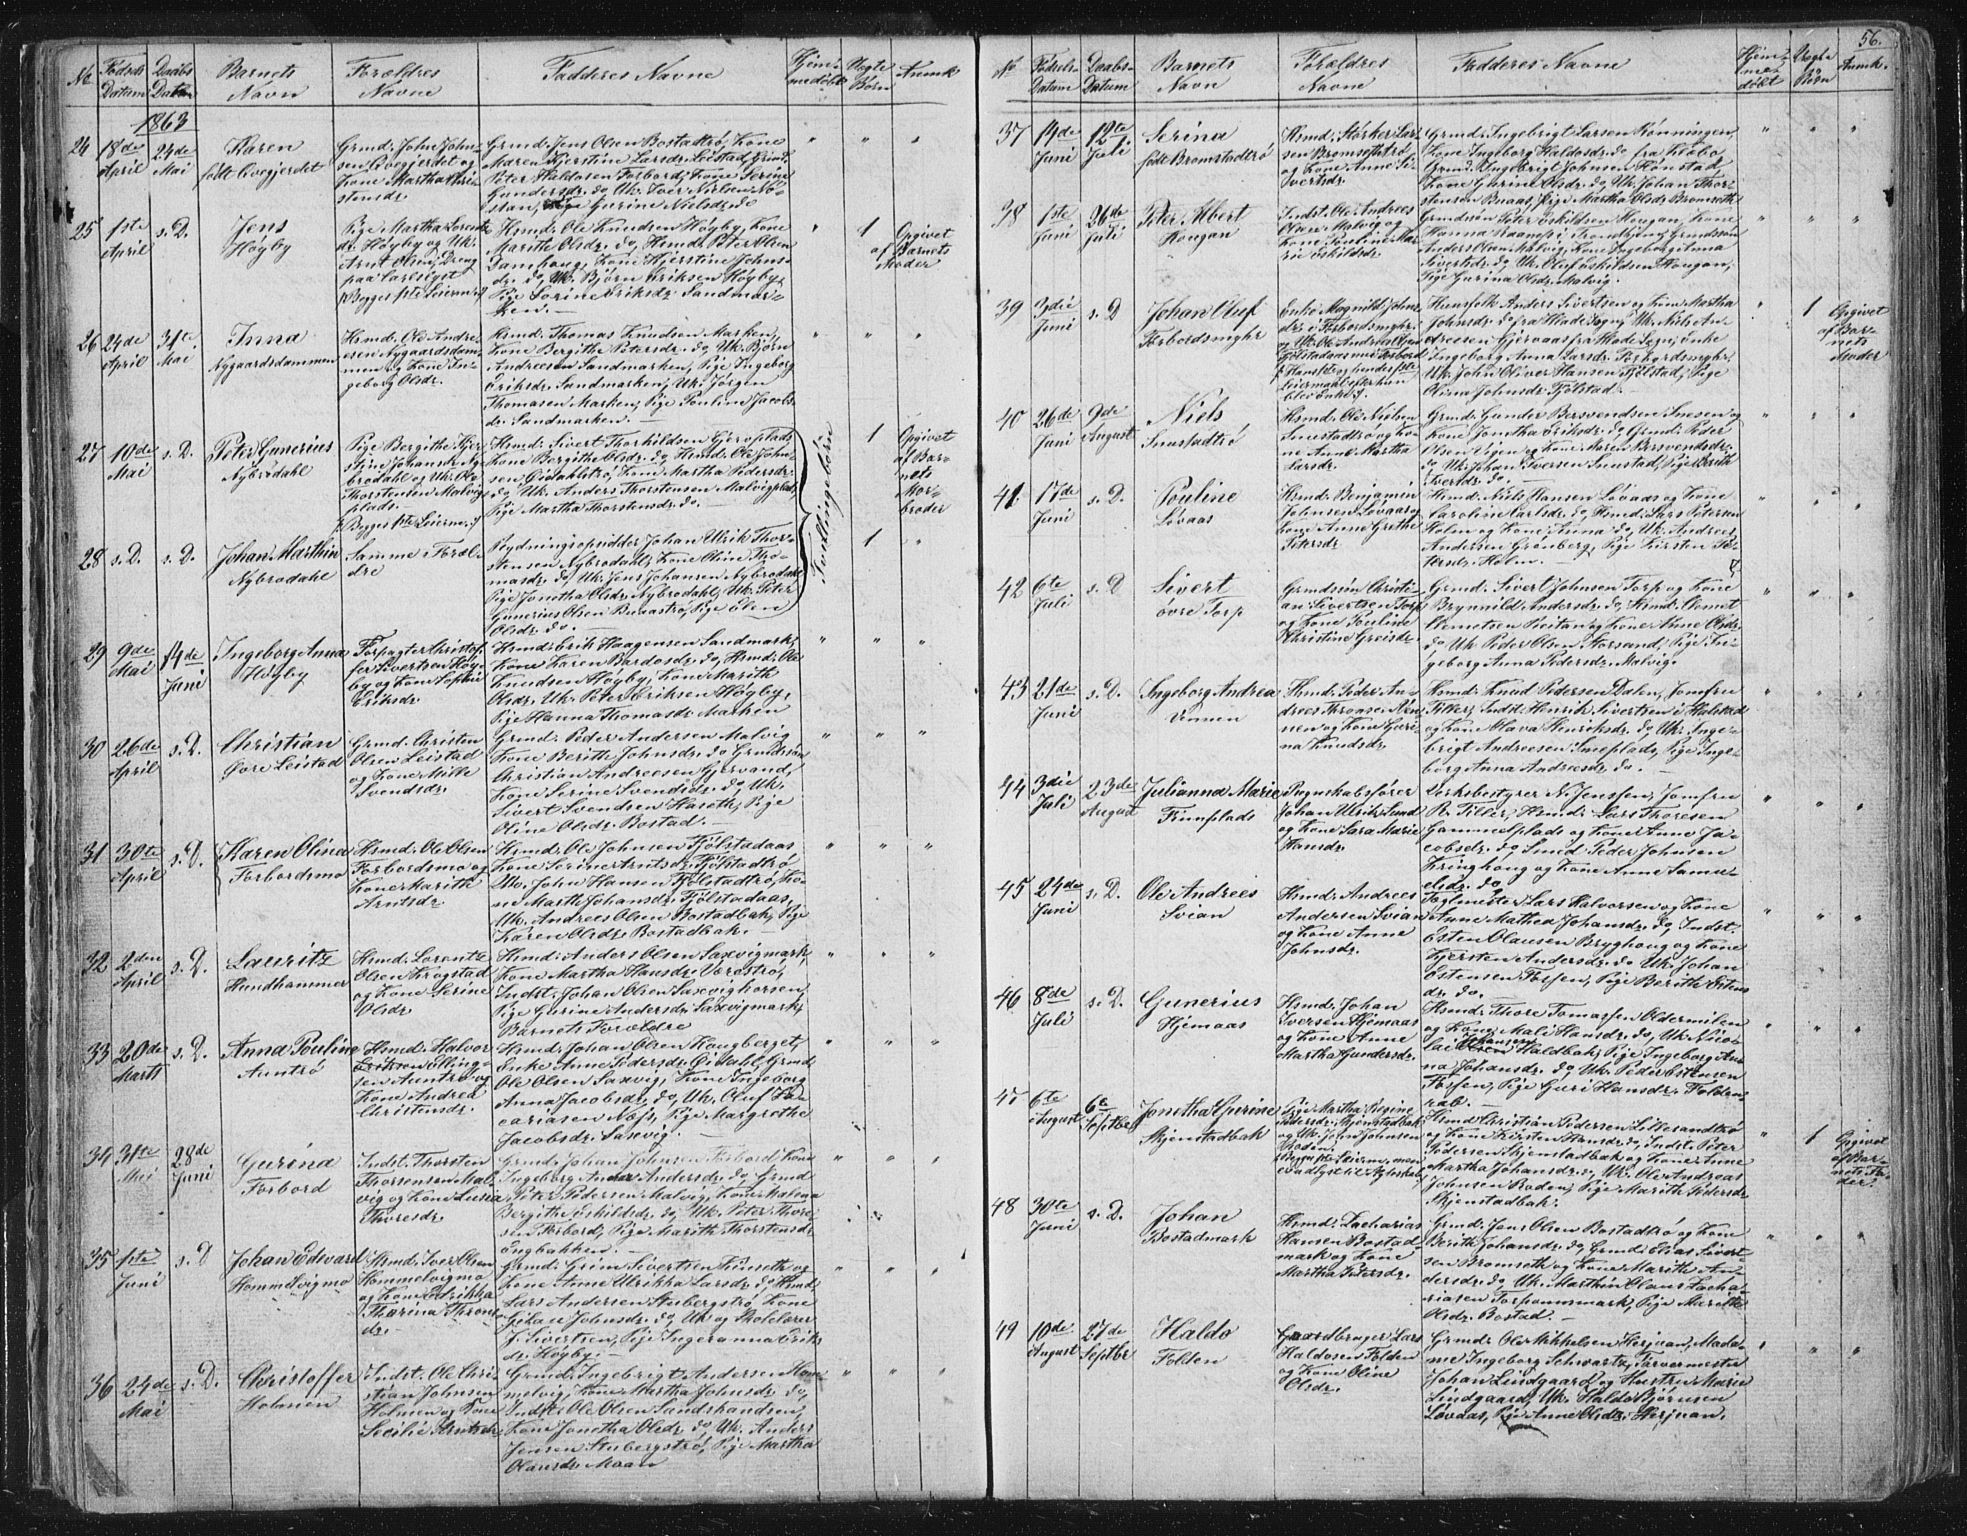 56.
No Fødsels Datum Daabs Datum Barnets Navn Forældres Navne Fadderes Navne Hjemmedøbt Uægte Børn Anmk
1863
24 18de April 24de Mai Karen
født Svegjerdet
Grmd. John John-
sen Svegjerdet og
Kone Martha
Grmd. Jens Olsen Bostadtrø, Kone
Maren Kjerstine Larsdr. Leistad, Grmd.
Peter Haldosen Forbord, Kone Serine
Gundersdr. do, Uk. Iver Nielsen
Pige Gurine Nielsdr. do
25 1ste April s. D. Jens
Høgby
Pige Martha
Høgby og Uk.
Arnt Olsen, Dreng
Begges 1ste Leierm.
Hsmd. Ole Knudsen Høgby, Kone
Marithe Olsdr. do, Hsmd. Peter Olsen
Damhaug, Kone Kjerstine Johns-
dr. do, Uk. Bjørn Eriksen Høgby,
Pige Sorine Eriksdr. Sandmar-
ken.
1 Opgivet
af Barnets
Moder
26 24de April 31te Mai Inna
Nygaardsdammen
Hsmd. Ole Andre-
esen Nygaardsdam-
men og Kone In-
geborg Olsdr.
Hsmd. Thomas Knudsen Marken,
Kone Bergithe Petersdr. do, Uk. Bjørn
Andreesen Sandmarken, Pige Ingeborg
Eriksdr. Sandmarken, Uk. Jørgen
Thomasen Marken, Pige Pauline Jacobs-
dr. Sandmarken.
27 10de Mai s. D. Peter Gunerius
Nybrodahl
Pige Bergithe Kjer-
stine Johansdr. Ny-
brodahl og Uk. Ole
Thorstensen Malvig-
plads.
Begges 1ste Leierm.
Hsmd. Sivert Thorkildsen Gjervplads,
Kone Bergithe Olsdr. do, Hsmd. Ole John-
sen Kone Martha Pedersdr.
do, Uk. Anders Thorstensen Malvigplads,
Pige Martha Thorstensdr. do.
Tvillingebørn
1 Opgivet
af Bar-
nets
Mor-
broder
28 s. D. s. D. Johan Marthin
Nybrodahl
Samme Foræl-
dre
Rydningsopsidder Johan Ulrik Thor-
stensen Nybrodahl, Kone Oline Tho-
masdr. do, Uk. Jens Johansen Nybrodahl
Pige Jonetha Olsdr. Nybrodahl, Uk. Peter
Gunerius Olsen Pige Elen
Olsdr. do.
1
29 9de Mai 14de Juni Ingeborg Anna
Høgby
Forpagter Christof-
fer Sivertsen Høg-
by og Kone Sophie
Eriksdr.
Hsmd. Erik Haagensen Sandmark,
Kone Karen Bardosdr. do, Hsmd. Ole
Knudsen Høgby, Kone Marith
Olsdr. Uk. Peter Eriksen Høgby,
Pige Hanna Thomasdr. Marken
30 26de April s. D. Christian
Øvre Leistad
Grmd. Christen
Olsen Leistad
og Kone Mille
Svendsdr.
Grmd. Peder Andersen Malvig
Kone Berithe Johnsdr. do, Grmdsøn
Christian Andreesen Gjervand,
Kone Serine Svendsdr. do, Uk.
Sivert Svendsen Pige
Oline Olsdr. Bostad.
31 30te April s. D. Karen Olina
Forbordsmo
Hsmd. Ole Olsen
Forbordsmo og
Kone Marith
Arntsdr
Hsmd. Ole Johnsen Fjølstadaas
Kone Serine Arntsdr. Fjølstadtrø
John Hansen Fjølstadtrø, Ko-
ne Marthe Johansdr. Fjølstadaas,
Uk. Andreas Olsen Bostadbak, Pige
Karen Olsdr. Bostadbak.
32 2den April s. D. Lauritz
Hundhammer
Hsmd. Lorentz
Olsen Krogstad
og Kone Serine
Olsdr
Hsmd. Anders Olsen Saxvigmark,
Kone Martha Hansdr. Værestrø,
Indst. Johan Olsen Saxvigkorsen,
Pige Gurine Andersdr. Saxvigmark,
Barnets Forældre
33 20de Marts s. D. Anna Pouline
Auntrø
Hsmd. Halvor
Elling-
sen Auntrø og
Kone Andrea
Christensdr.
Hsmd. Johan Olsen Haugberget,
Enke Anne Pedersdr. Grmd.
Ole Olsen Saxvig, Kone Ingeborg
Anna Jacobsdr. do, Uk. Oluf Za-
cariasen Næss, Pige Margrethe
Jacobsdr. Saxvig.
34 31te Mai 28de Juni Gurina
Forbord
Indst. Thorsten
Thorsensen Mal-
vig og Kone
Thoresdr.
Grmd. Johan Johnsen Forbord, Kone
Ingeborg Andersdr. do, Grmd
Peter Pedersen Malvig, Kone Malena
Bergithe Eskildsdr. do, Uk. Peter Thore-
sen Forbord, Pige Marith Thorstensdr.
Engbakken.
35 1ste Juni s. D Johan Edvard
Hommelvigmo
Hsmd. Iver Olsen
Hommelvigmo
og Kone Edrikka
Thrond-
dr.
Grmd. Grim Sivertsen og
Kone Anne Ulrikka Larsdr. do, Hsmd.
Lars Andersen Stubergstrø, Kone
Johnsdr. do, Uk. og Skolelærer
J. Sivertsen, Pige Ingeranna Erik-
dr. Høgby.
36 24de Mai s. D. Christoffer
Holmen
Indst. Ole Chri-
stian Johnsen
Holmen og Kone
Cecilie Arntsdr.
Grmd. Ingebrigt Andersen Hom-
melvig, Kone Martha Johnsdr. do,
Indst. Ole Olsen Sandskandsen,
Kone Jonetha Olsdr. do, Uk. Anders
Jensen Stubergstrø, Pige Martha
Olausdr. Moan
No Fødsels-Datum Daabs-Datum Barnets Navn Forældres Navne Fadderes Navne Hjemmedøbt Uægte Børn Anmk.
37 14de Juni 12te Juli Serina
født Bromstadtrø
Hsmd. Størker Lar-
sen Bromsethtrø
og Kone Anne Si-
vertsdr.
Grmd. Ingebrigt Larsen Rønningen,
Kone Ingeborg Haldosdr. do fra Klæbo
Grmd. Ingebrigt Johnsen Rønstad,
Kone Gurine Olsdr. do, Uk. Johan Thor-
stensen Buaas, Pige Martha Olsdr Bromseth
38 1ste Juni 26de Juli Peter Albert
Hougan
Indst. Ole Andreas
Olsen Malvig og
Kone Pauline Ma-
rie Eskildsdr.
Grmdsøn Peter Eskildsen Hougan, Kone
Hanna i Trondhjem, Grmdsøn
Anders Olsen Malvig, Kone Ingeborg Anna
Sivertsdr. do, Uk. Oluf Eskildsen Hougan,
Pige Gurina Olsdr. Malvig.
39 3die Juni s. D Johan Oluf
Forbordsmyhr
Enke Magnild Johns-
dr. i Forbordsmyhr.
og Uk. Ole Andreas Olsen
Fjølstadaas
Leiermaal efter hun
blev Enke.
Huusfolk Anders Sivertsen og Kone Martha
Johnsdr. do fra Hlade Sogn, Uk. Nils An-
dreesen Gjervaas fra Hlade Sogn, Enke
Ingeborg Anna Larsdr. Forbordsmyhr,
Uk. John Oliver Hansen Fjølstad, Pige
Olina Johnsdr Fjølstad.
1 Opgivet
af Bar-
nets
Moder
40 26de Juni 9de August Niels
Snustadtrø
Hsmd. Ole Nielsen
Snustadtrø og Ko-
ne Anne Martha
Larsdr.
Grmd. Gunder Bersvendsen Snesen og
Kone Jonetha Eriksdr. do, Grmd. Peder
Olsen Vigen og Kone Maren Bersvendsdr.
do, Uk. Johan Iversen Snustad, Pige Berith
Ivertsdr. do.
41 17de Juni s. D. Pouline
Løvaas
Hsmd. Benjamin
Johnsen Løvaas og
Kone Anne Grethe
Petersdr
Hsmd. Niels Hansen Løvaas og Kone
Caroline Carlsdr. do, Hsmd. Lars Petersen
Holm og Kone Anna do, Uk. Andreas
Andersen Grønberg, Pige Kirsten Pe-
tersdr. Holm.
42 6te Juli s. D Sivert
øvre Torp
Grmdsøn Christi-
an Sivertsen Torp
og Kone Pouline
Christine Greisdr.
Grmd. Sivert Johnsen Torp og Kone
Brynnild Andersdr. do, Hsmd. Klemet
Klemetsen Reitan og Kone Anne Olsdr.
do, Uk Peder Olsen Storsand, Pige In-
geborg Anna Pedersdr. Malvig.
43 21de Juni s. D. Ingeborg Andrea
Vinnen
Hsmd. Peder An-
dreas Thronsen Vin-
nen og Kone Guri-
na Knudsdr.
Hsmd. Knud Pedersen Dalen, Jomfru
Tiller, Indst. Henrik Sivertsen i Halstad
og Kone Henriksdr. do, Uk. Inge-
brigt Andreesen Pige Inge-
borg Anna Andreesdr. do.
44 3die Juli 23de August Julianna Marie
Regnskabsfører
Johan Ulrik Lund
og Kone Sara Marie
Hansdr.
Værksbestyrer N. Jenssen, Jomfru
R. Tiller, Hsmd. Lars Thoresen
Gammelplads og Kone Anne Ja-
cobsdr. do, Smed Peder Johnsen
Kringhoug og Kone Anne Samu-
elsdr. do.
45 24de Juni s. D. Ole Andreas
Svean
Hsmd. Andreas
Andersen Svean
og Kone Anne
Johnsdr.
Teglmester Lars Halvorsen og Kone
Anne Mathea Johansdr. do, Indst.
Esten Olausen Bryghoug og Kone
Kjersten Andersdr. do, Uk. Johan
Estensen Fossen, Pige Berithe Estens-
dr. do.
46 8de Juli s. D. Gunerius
Hjemaas
Hsmd. Johan
Iversen Hjemaas
og Kone Anne
Martha Gundersdr.
Hsmd. Thore Tomassen Oldermilen
og Kone Mali Hansdr. do, Uk. Nico-
lai Johansen Haldbak, Pige Ingeborg An-
na Johansdr. do, Uk. Peder Estensen
Fossen, Pige Guri Hansdr. Folden-
rab.
47 6te August 6te Septbr Jonetha Gurine
Skjenstadbak
Pige Martha Regine
Pedersdr. Skjenstadbak
og Uk. John Johnsen
Hsmd. Christian Pedersen Litlesandtrø
og Kone Kirsten Hansdr. do, Indst. Peter
Pedersen Skjenstadbak og Kone Anne
Martha Johansdr. do, Uk. Ole Andreas
Johnsen Pige Marith Pedersdr.
Skjenstadbak.
1 Opgivet
af Bar-
nets Fa-
der.
48 30te Juni s. D. Johan
Bostadmark
Hsmd. Zacharias
Hansen Bostad-
mark og Kone
Martha Petersdr.
Grmd. Jens Olsen Bostadtrø og Kone
Berith Johansdr. do, Grmd. Elias Sivert-
sen Bromseth og Kone Marith An-
dersdr. do, Uk. Marthin Olaus Zacha-
riasen Pige Marith
Olsdr. Bostad.
49 10de August 27de Septbr Haldo
Folden
Gaardbruger Lars
Haldosen Folden
og Kone Oline
Olsdr.
Grmd. Ole Mikkelsen Herjuan, Mada-
me Ingeborg Schwartz, Farvermester
Johan Lindgaard og Hustru Marie
Lindgaard, Uk. Haldo Bjørnsen
Løvaas, Pige Anne Olsdr. Herjuan.